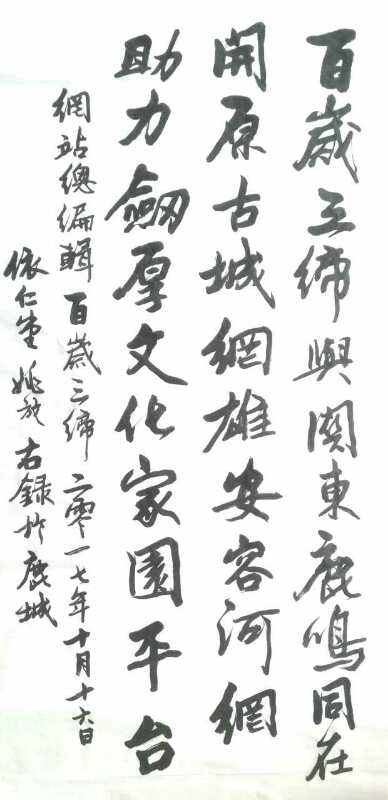 百歲三締與関東鹿鳴同在
開原古城網雄安容河網
助力劔厚文化家園平台
網站總編輯百歲三締二零一七年十月十六日
依仁堂姚 右録於鹿城